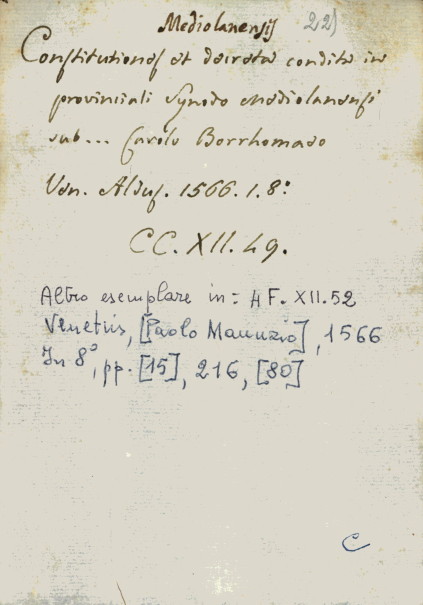 Mediolanensis 22)
Constitutiones et decreta condita in
provinciali Synodo Mediolanensi
sub... Carolo Borrhomaeo
Ven. Aldus. 1566. 1. 8º
CC. XII. 49.
Altro esemplare in: HF. XII. 52
Venetiis, [Paolo Manuzio], 1566
In 8º, pp. [15], 216, [80]
C